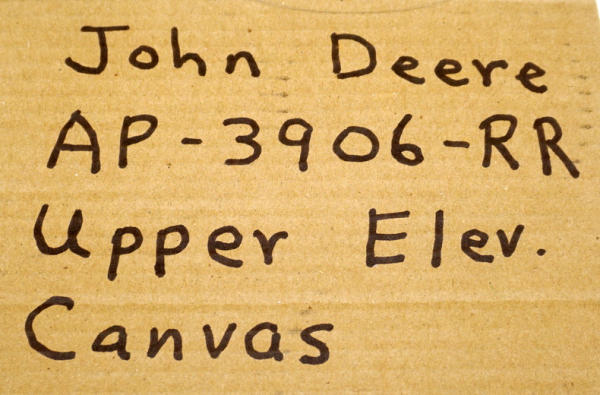 John Deere
AP-3906-RR
Upper Elev.
Canvas